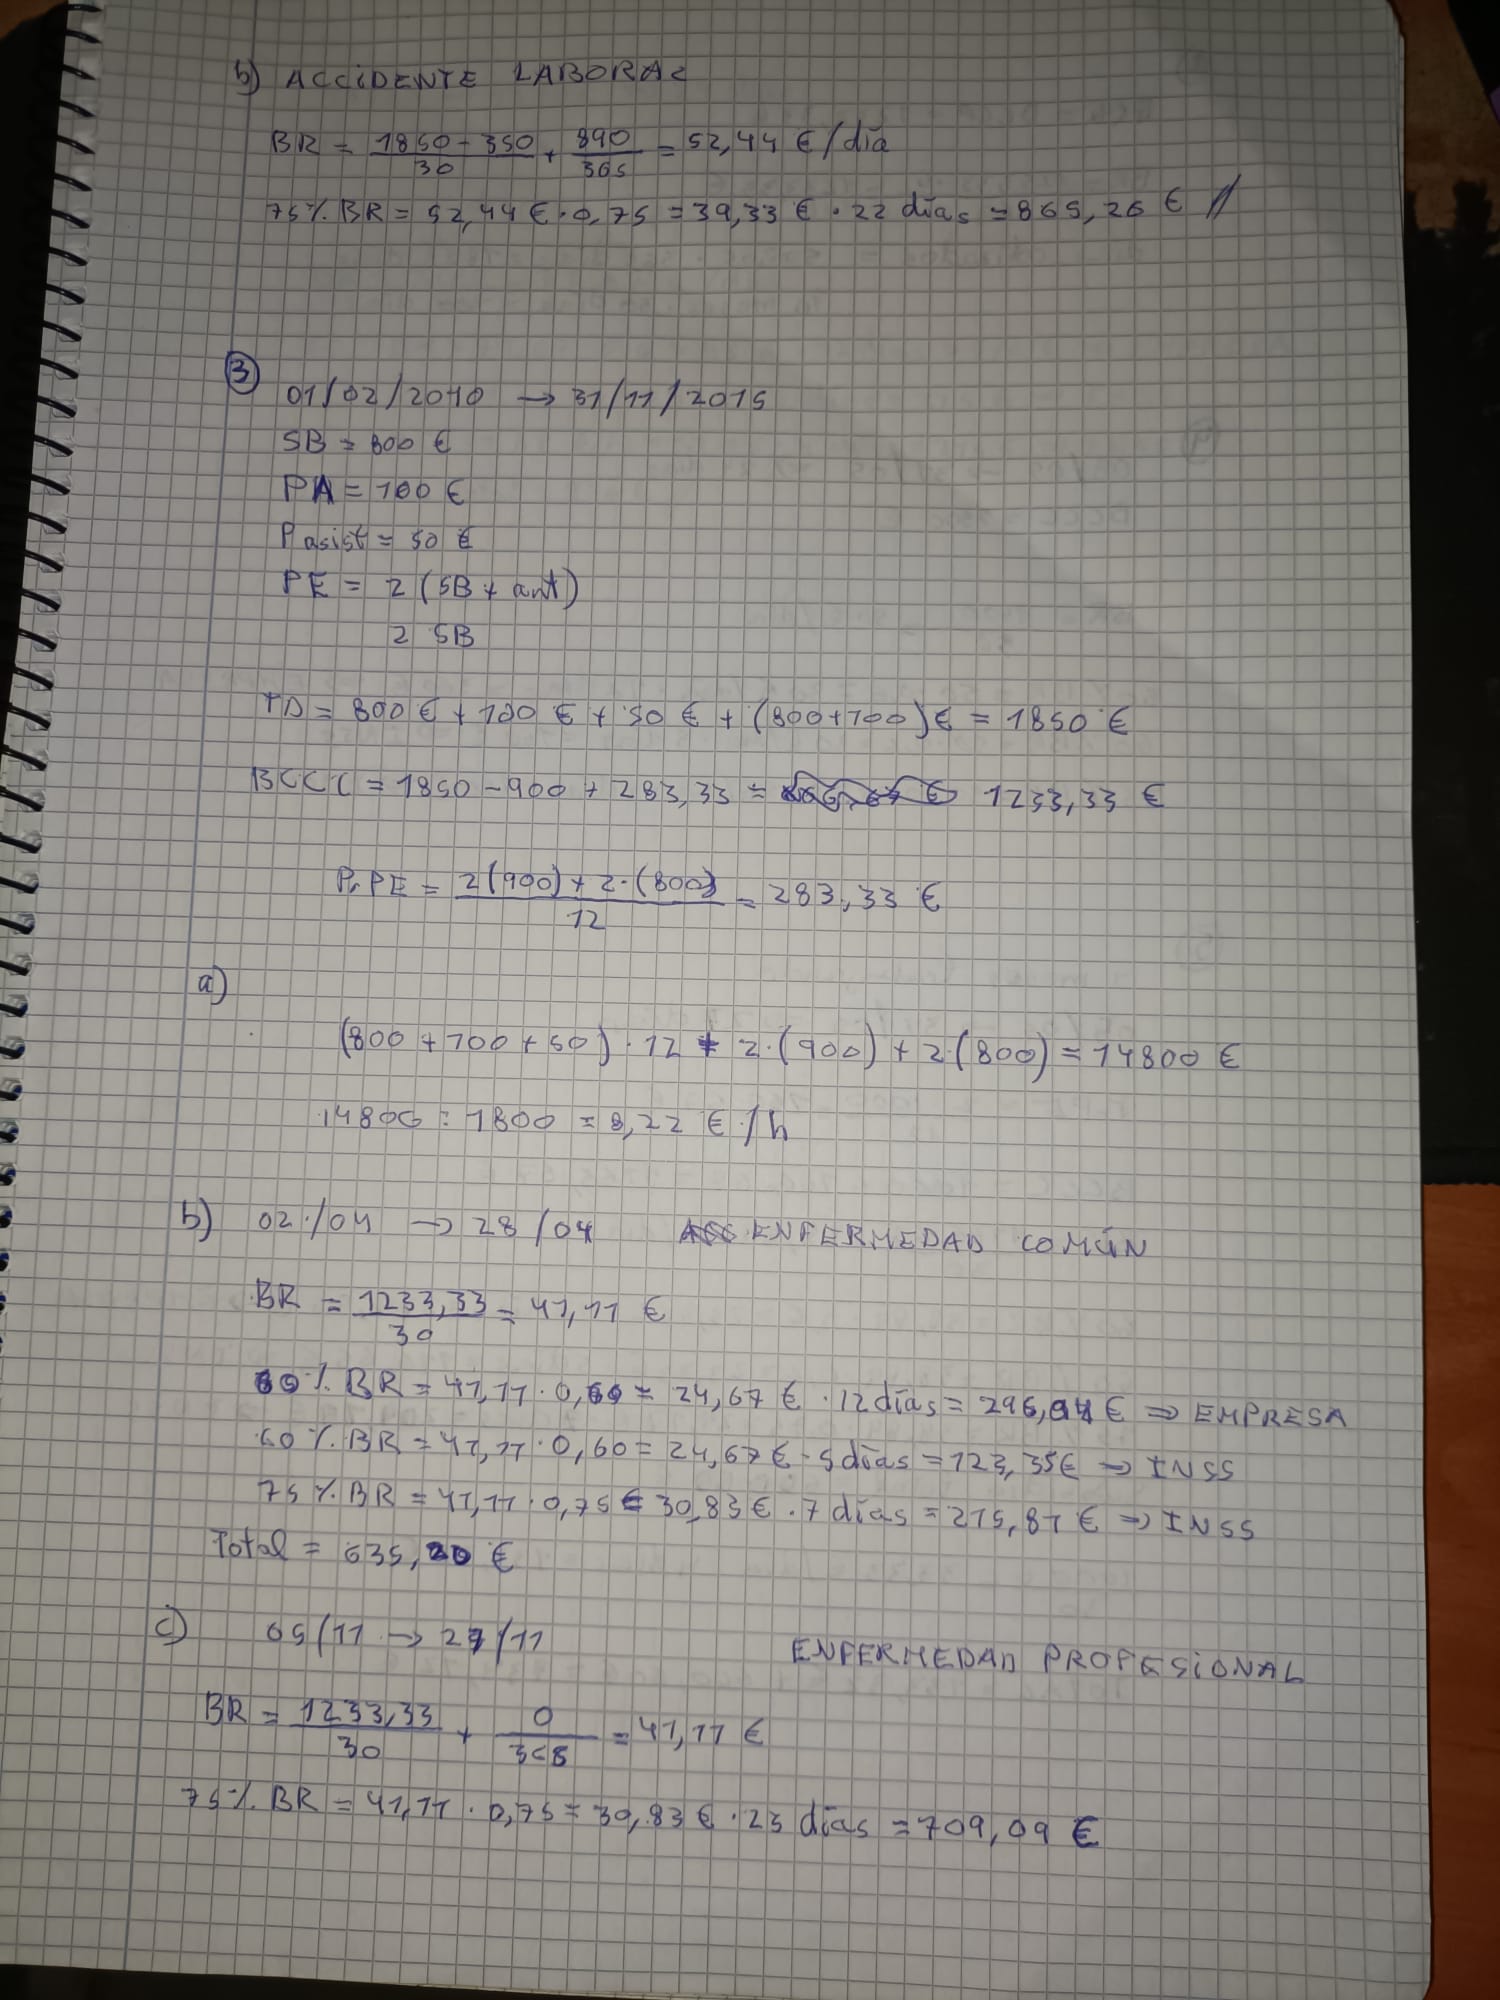 b) ACCIDENTE LABORAL
BR = 1850 - 350 / 30 + 890 / 365 = 52,44 € / día
75 % BR = 52,44 € · 0,75 = 39,33 € · 22 días = 865,26 € //
③
01/02/2010 → 31/11/2015
SB = 800 €
PA = 100 €
P asist = 50 €
PE = 2 (SB + ant)
2 SB
TD = 800 € + 100 € + 50 € + (800+100) € = 1850 €
BCCC = 1850 - 900 + 283,33 = 1233,33 €
PrPE = 2(900) + 2·(800) / 12 = 283,33 €
a)
(800 + 100 + 50) · 12 + 2·(900) + 2·(800) = 14800 €
14800 : 1800 = 8,22 € / h
b) 02/04 → 28/04 ENFERMEDAD COMÚN
BR = 1233,33 / 30 = 41,11 €
60 % BR = 41,11 · 0,60 = 24,67 € · 12 días = 296,04 € ⇒ EMPRESA
60 % BR = 41,11 · 0,60 = 24,67 € · 5 días = 123,35 € → INSS
75 % BR = 41,11 · 0,75 = 30,83 € · 7 días = 215,81 € → INSS
Total = 635,20 €
c) 05/11 → 27/11 ENFERMEDAD PROFESIONAL
BR = 1233,33 / 30 + 0 / 365 = 41,11 €
75 % BR = 41,11 · 0,75 = 30,83 € · 23 días = 709,09 €